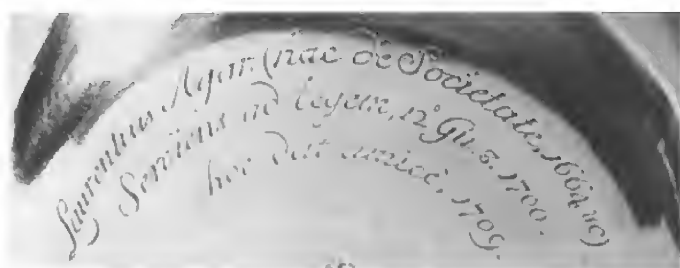 Laurentius Agar (hac de Societate, 1664 uc)
Serviens ad legem, 12° Gu. 3. 1700.
hoc dat amicè, 1709.